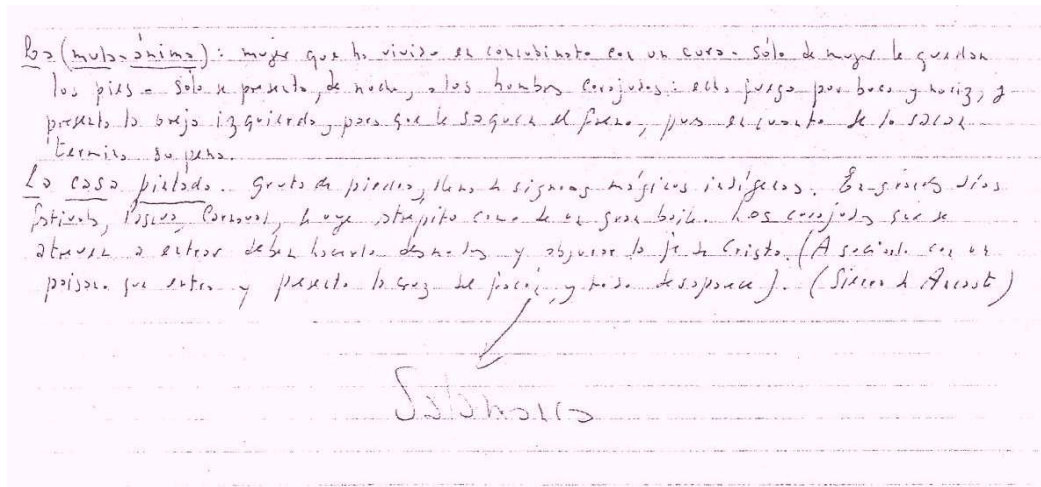 La (mula-ánima): mujer que ha vivido en concubinato con un cura. Sólo de mujer le quedan
los pies. Sólo se presenta, de noche, a los hombres corajudos: echa fuego por boca y nariz, y
presenta la oreja izquierda, para que le saquen el freno, pues en cuanto se lo sacan
termina su pena.
La casa pintada. Gruta de piedra, llena de signos mágicos indígenas. En grandes días
festivos, Pascua, Carnaval, se oye estrépito como de un gran baile. Los corajudos que se
atreven a entrar deben hacerlo desnudos y abjurar la fe de Cristo. (Asociado con un
paisano que entra y presenta la cruz del facón, y todo desaparece). (Sierra de Ancasti)
Salamanca